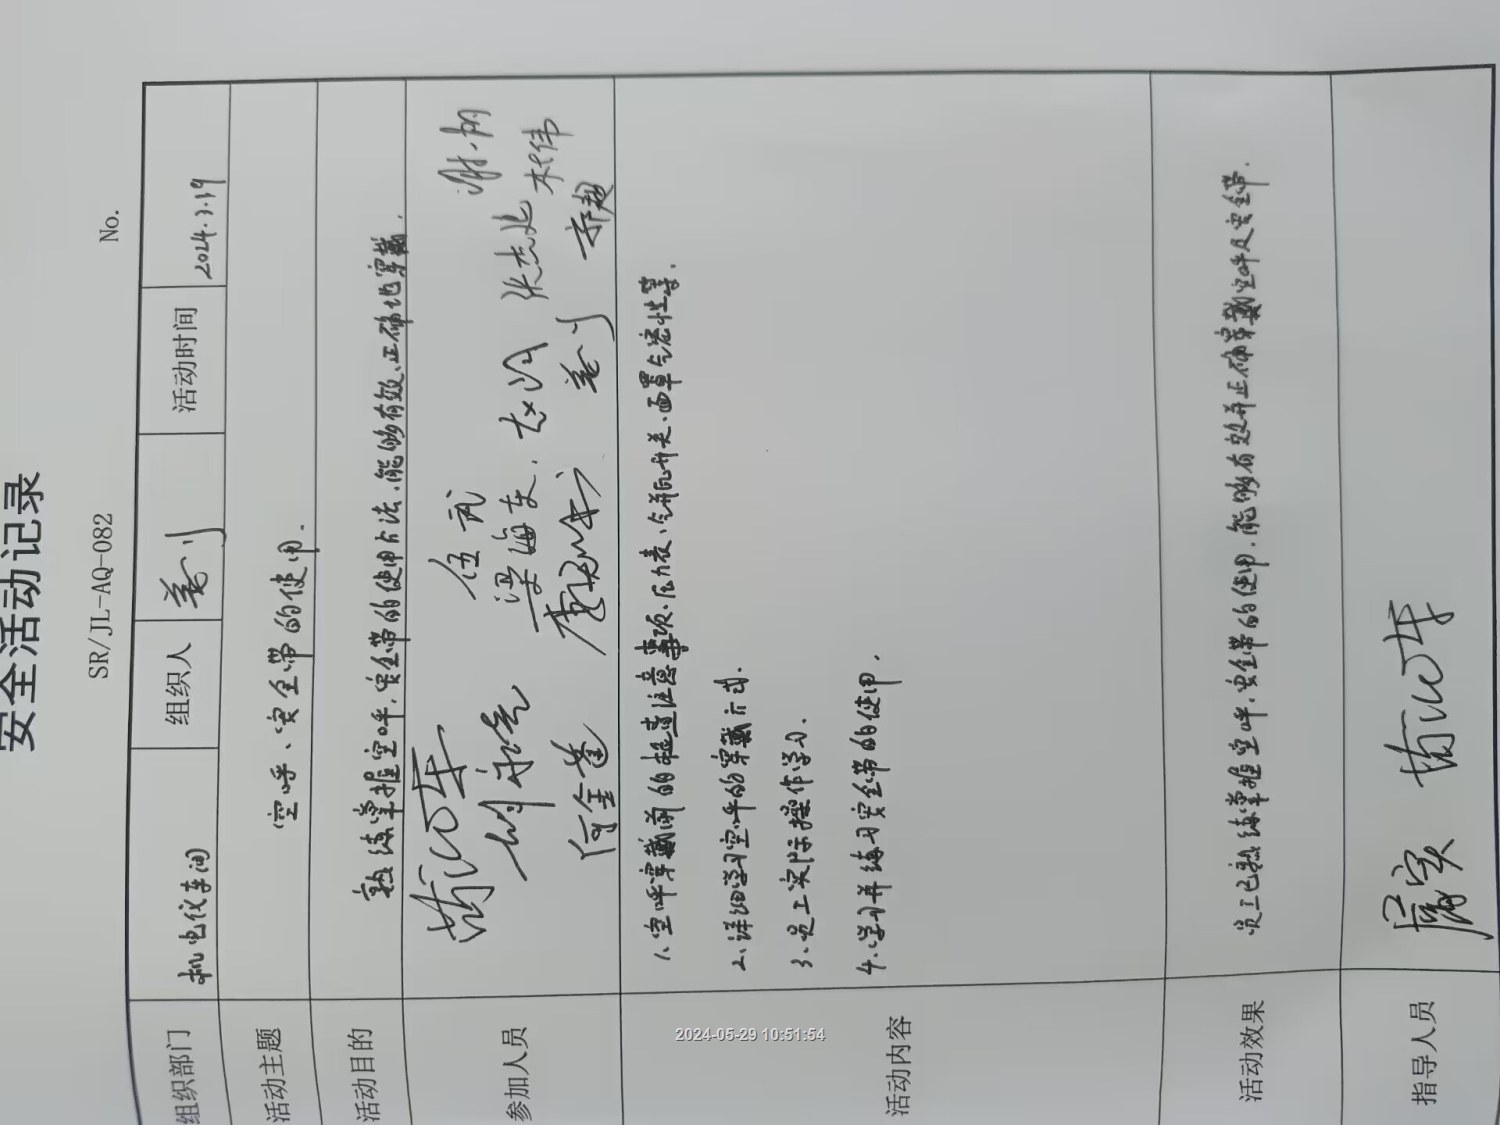 安全活动记录
SR/JL-AQ-082 No.
组织部门 机电仪车间 组织人 活动时间 2024.3.19
活动主题 空呼、安全带的使用.
活动目的 熟练掌握空呼,安全带的使用方法,能够有效、正确地穿戴.
参加人员
伍武
梁海东 张杰 林伟
何金莲 乔超
活动内容
1、空呼穿戴前的检查注意事项、压力表、气瓶开关、面罩气密性等.
2、详细学习空呼的穿戴方式.
3、员工实际操作学习.
4、学习并练习安全带的使用.
活动效果 员工已熟练掌握空呼,安全带的使用,能够有效并正确穿戴空呼及安全带.
指导人员
2024-05-29 10:51:54